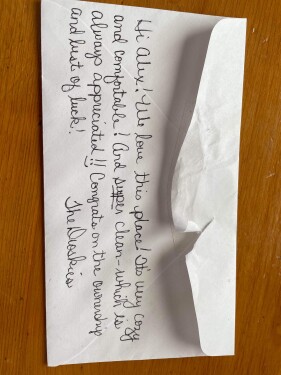 Hi Alex! We love this place! It's very cozy
and comfortable! And super clean - which is
always appreciated!! Congrats on the ownership
and best of luck!
The Dioskies